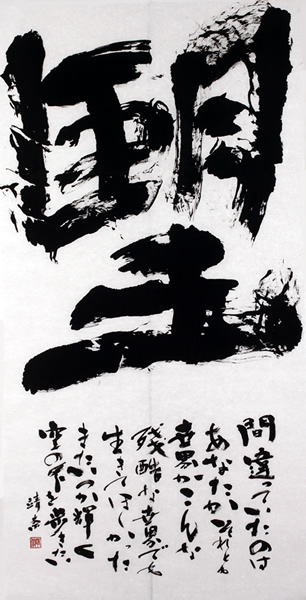 朢
間違っていたのは
あなたかそれとも
世界かこんな
残酷な世界でも
生きてほしかった
またいつか輝く
空の下を歩きたい